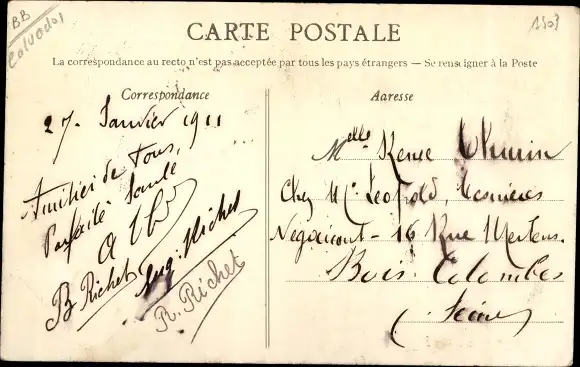 BB
Calvados
1503
CARTE POSTALE
La correspondance au recto n'est pas acceptée par tous les pays étrangers — Se renseigner à la Poste
Correspondance
27. Janvier 1911
Amitiés de tous,
Parfaite Santé
B Richet
Aug. Richet
R. Richet
Adresse
Melle Renée
Chez Mr. Léopold,
Négociant - 16 Rue Mertens.
Bois. Colombes
(Seine)